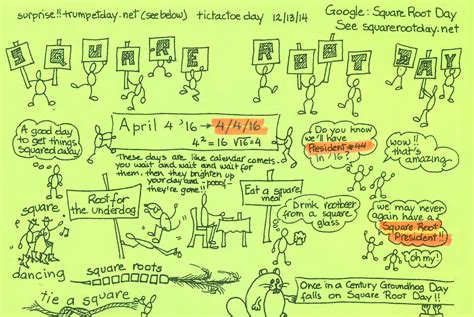 surprise!! trumpetday.net (see below) tictactoe day 12/13/14
Google: Square Root Day
See squarerootday.net
SQUARE ROOT DAY
A good day
to get things
squared away
April 4 '16 → 4/4/16
4² = 16 √16 = 4
These days are like calendar comets
you wait and wait and wait for
them, then they brighten up
your day and poof
they're gone!!
Do you know
we'll have
President #44
in '16?
wow!!
that's
amazing
square
dancing
Root for
the underdog
Eat a square
meal
Drink rootbeer
from a square
glass
we may never
again have a
Square Root
President!!
oh my!
square roots
tie a square
Once in a Century Groundhog Day
falls on Square Root Day!!